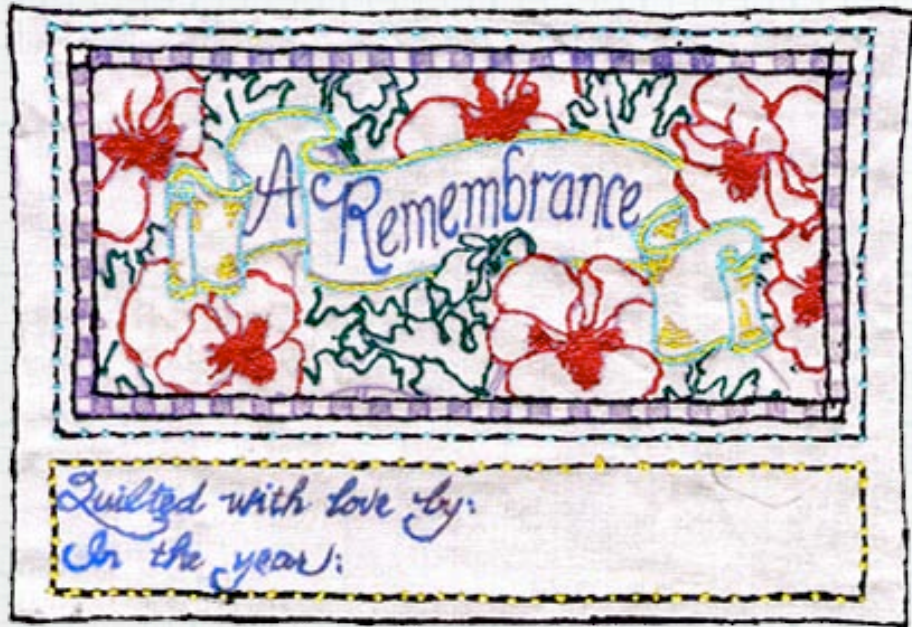 A Remembrance
Quilted with love by:
In the year: